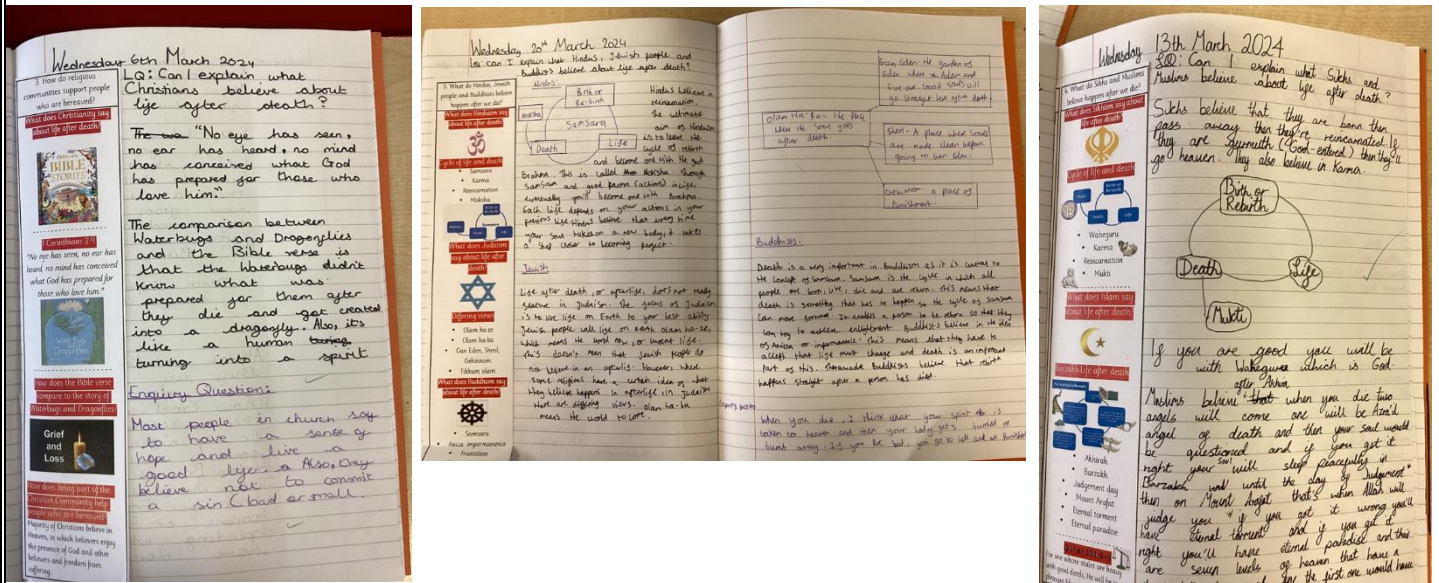 Wednesday 6th March 2024
3. How do religious
communities support people
who are bereaved?
What does Christianity say
about life after death?
BIBLE
STORIES
1 Corinthians 2:9
"No eye has seen, no ear has
heard, no mind has conceived
what God has prepared for
those who love him."
Waterbugs
and
Dragonflies
How does the Bible verse
compare to the story of
Waterbugs and Dragonflies?
Grief
and
Loss
How does being part of the
Christian Community help
people who are bereaved?
Majority of Christians believe in
Heaven, in which believers enjoy
the presence of God and other
believers and freedom from
suffering.
LQ: Can I explain what
Christians believe about
life after death?
"No eye has seen,
no ear has heard, no mind
has conceived what God
has prepared for those who
love him."
The comparison between
Waterbugs and Dragonflies
and the Bible verse is
that the Waterbugs didn't
know what was
prepared for them after
they die and got created
into a dragonfly. Also, it's
like a human
turning into a spirit
Enquiry Question:
Most people in church say
to have a sense of
hope and live a
good life. Also, they
believe not to commit
a sin (bad or small.
Wednesday 20th March 2024
LQ: Can I explain what Hindus, Jewish people and
Buddhists believe about life after death?
5. What do Hindu, Jewish
people and Buddhists believe
happen after we die?
What does Hinduism say
about life after death?
Cycle of life and death
Samsara
Karma
Reincarnation
Moksha
What does Judaism
say about life after
death?
Differing views
Olam ha-ze
Olam ha-ba
Gan Eden, Sheol,
Gehinnom
Tikkum olam
What does Buddhism say
about life after death?
Samsara
Anica- impermanence
Transition
Hindus:
Birth or
Re-birth
Moksha
Samsara
Death
Life
Hindus believe in
reincarnation.
The ultimate
aim of Hinduism
is to leave the
cycle of rebirth
and become one with the god
Brahma. This is called Moksha. Through
Samsara and good karma (actions) in life,
eventually you'll become one with Brahma.
Each life depends on your actions in your
previous life. Hindus believe that every time
your soul takes on a new body, it takes
a step closer to becoming perfect.
Jewish
Life after death, or afterlife, does not really
feature in Judaism. The focus of Judaism
is to live life on Earth to your best ability.
Jewish people call life on earth olam ha-ze,
which means the world now, or current life.
This doesn't mean that Jewish people do
not believe in an afterlife. However, where
some religions have a certain idea of what
they believe happens in afterlife in Judaism
there are differing views. olam ha-ba
means the world to come.
Gan Eden- The garden of
Eden where Adam and
Eve are. Good souls will
go straight here after death.
Olam Ha-Ba- The Place
where the soul goes
after death.
Sheol- A place where souls
are made clean before
going to Gan Eden.
Gehinnom- a place of
Punishment.
Buddhists:
Death is a very important in Buddhism as it is central to
the concept of samsara. Samsara is the cycle in which all
people are born, live, die and are reborn. This means that
death is something that has to happen so the cycle of samsara
can move forward. It enables a person to be reborn so that they
can try to achieve enlightment. Buddhists believe in the idea
of Anicca or impermanence. This means that they have to
accept that life must change and death is an important
part of this. Theravada Buddhists believe that rebirth
happens straight after a person has died.
When you die, I think that your spirit is
taken to heaven and then your body gets buried or
burnt away. If you be bad, you go to hell and
Wednesday 13th March 2024
4. What do Sikhs and Muslims
believe happen after we die?
What does Sikhism say about
life after death?
Cycle of life and death
Waheguru
Karma
Reincarnation
Mukti
What does Islam say
about life after death?
Barzakh-Life after death
Akhirah
Barzakh
Judgement day
Mount Arafat
Eternal torment
Eternal paradise
For one whose scales are heavy
with good deeds, He will be in
LQ: Can I explain what Sikhs and
Muslims believe about life after death?
Sikhs believe that they are born then
pass away then they're reincarnated. If
they are Gurmukh (God-centered) then they'll
go heaven. They also believe in Karma.
Birth or
Rebirth
Death
Life
Mukti
If you are good you will be
with Waheguru which is God.
after Akhira
Muslims believe that when you die two
angels will come one will be Azra'il
angel of death and then your soul would
be questioned and if you got it
right your soul will sleep peacefully in
Barzakh until the day of Judgement"
then on Mount Arafat that's when Allah will
judge you "if you got it wrong you'll
have eternal torment and if you get it
right you'll have eternal paradise and there
are seven levels of heaven that have a
the first one would have